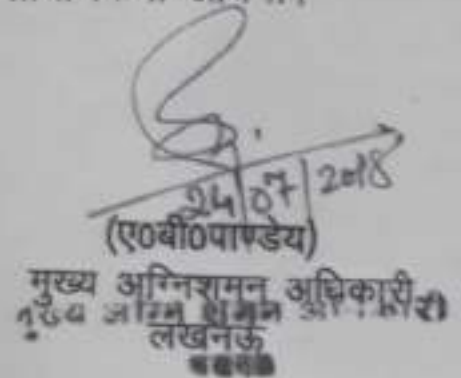 24/07/2018
(ए०बी०पाण्डेय)
मुख्य अग्निशमन अधिकारी
मुख्य अग्नि शमन अधिकारी
लखनऊ